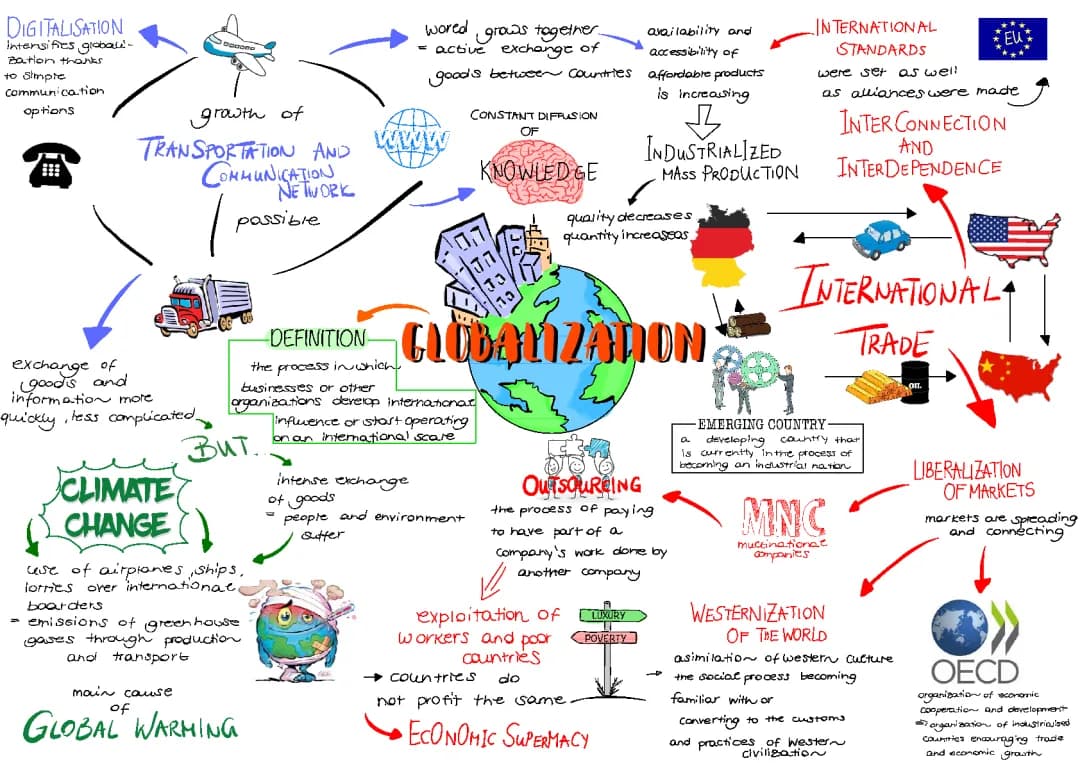 DIGITALISATION
intensifies globali-
zation thanks
to simple
communication
options
growth of
TRANSPORTATION AND
COMMUNICATION
NETWORK
possible
WWW
wored grows together
= active exchange of
goods between countries
availability and
accessibility of
affordable products
is increasing
INTERNATIONAL
STANDARDS
were set as well
as alliances were made
EU
CONSTANT DIFFUSION
OF
KNOWLEDGE
INDUSTRIALIZED
MASS PRODUCTION
quality decreases
quantity increaseas
INTERCONNECTION
AND
INTERDEPENDENCE
INTERNATIONAL
TRADE
OIL
GLOBALIZATION
DEFINITION
the process in which
businesses or other
organizations develop international
influence or start operating
on an international scare
exchange of
goods and
information more
quickly, less complicated
BUT
intense exchange
of goods
= people and environment
suffer
CLIMATE
CHANGE
use of airplanes, ships,
lorries over international
boarders
= emissions of greenhouse
gases through production
and transport
main cause
of
GLOBAL WARMING
EMERGING COUNTRY
a developing country that
is currently in the process of
becoming an industrial nation
OUTSOURCING
the process of paying
to have part of a
company's work done by
another company
MNC
multinational
companies
LIBERALIZATION
OF MARKETS
markets are spreading
and connecting
exploitation of
workers and poor
countries
→ countries do
not profit the same
ECONOMIC SUPERMACY
LUXURY
POVERTY
WESTERNIZATION
OF THE WORLD
asimilation of western culture
the social process becoming
familiar with or
converting to the customs
and practices of Western
civilization
OECD
organization of economic
cooperation and development
⇒ organization of industrialised
countries encouraging trade
and economic growth